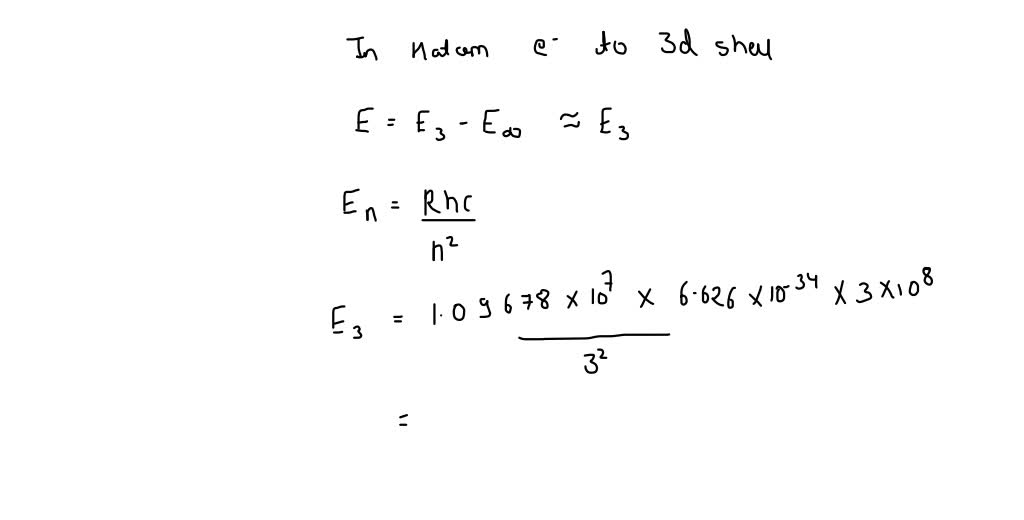 In H atom e⁻ to 3d shell
E = E₃ - E∞ ≈ E₃
Eₙ = Rhc
n²
E₃ = 1.09678 × 10⁷ × 6.626 × 10⁻³⁴ × 3 × 10⁸
3²
=